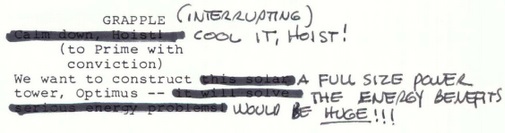 GRAPPLE (INTERRUPTING)
Calm down, Hoist! COOL IT, HOIST!
(to Prime with
conviction)
We want to construct this solar A FULL SIZE POWER
tower, Optimus -- it will solve THE ENERGY BENEFITS
serious energy problems! WOULD BE HUGE!!!